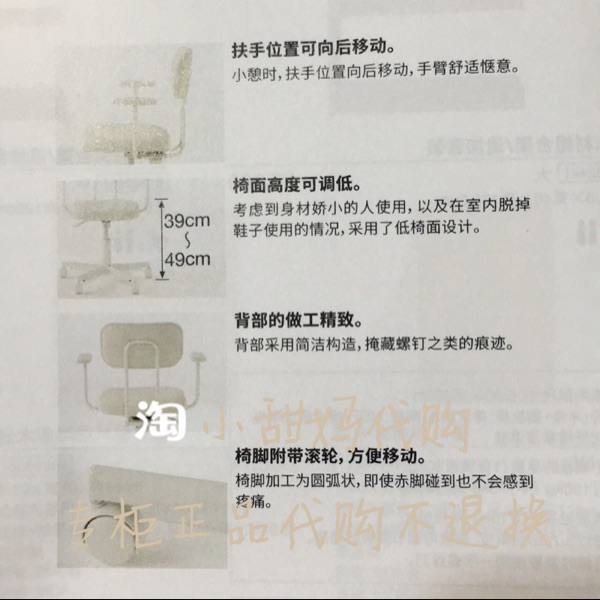 扶手位置可向后移动。
小憩时，扶手位置向后移动，手臂舒适惬意。
椅面高度可调低。
考虑到身材娇小的人使用，以及在室内脱掉
鞋子使用的情况，采用了低椅面设计。
39cm
〜
49cm
背部的做工精致。
背部采用简洁构造，掩藏螺钉之类的痕迹。
淘 小甜妈代购
椅脚附带滚轮，方便移动。
椅脚加工为圆弧状，即使赤脚碰到也不会感到
疼痛。
专柜正品代购不退换